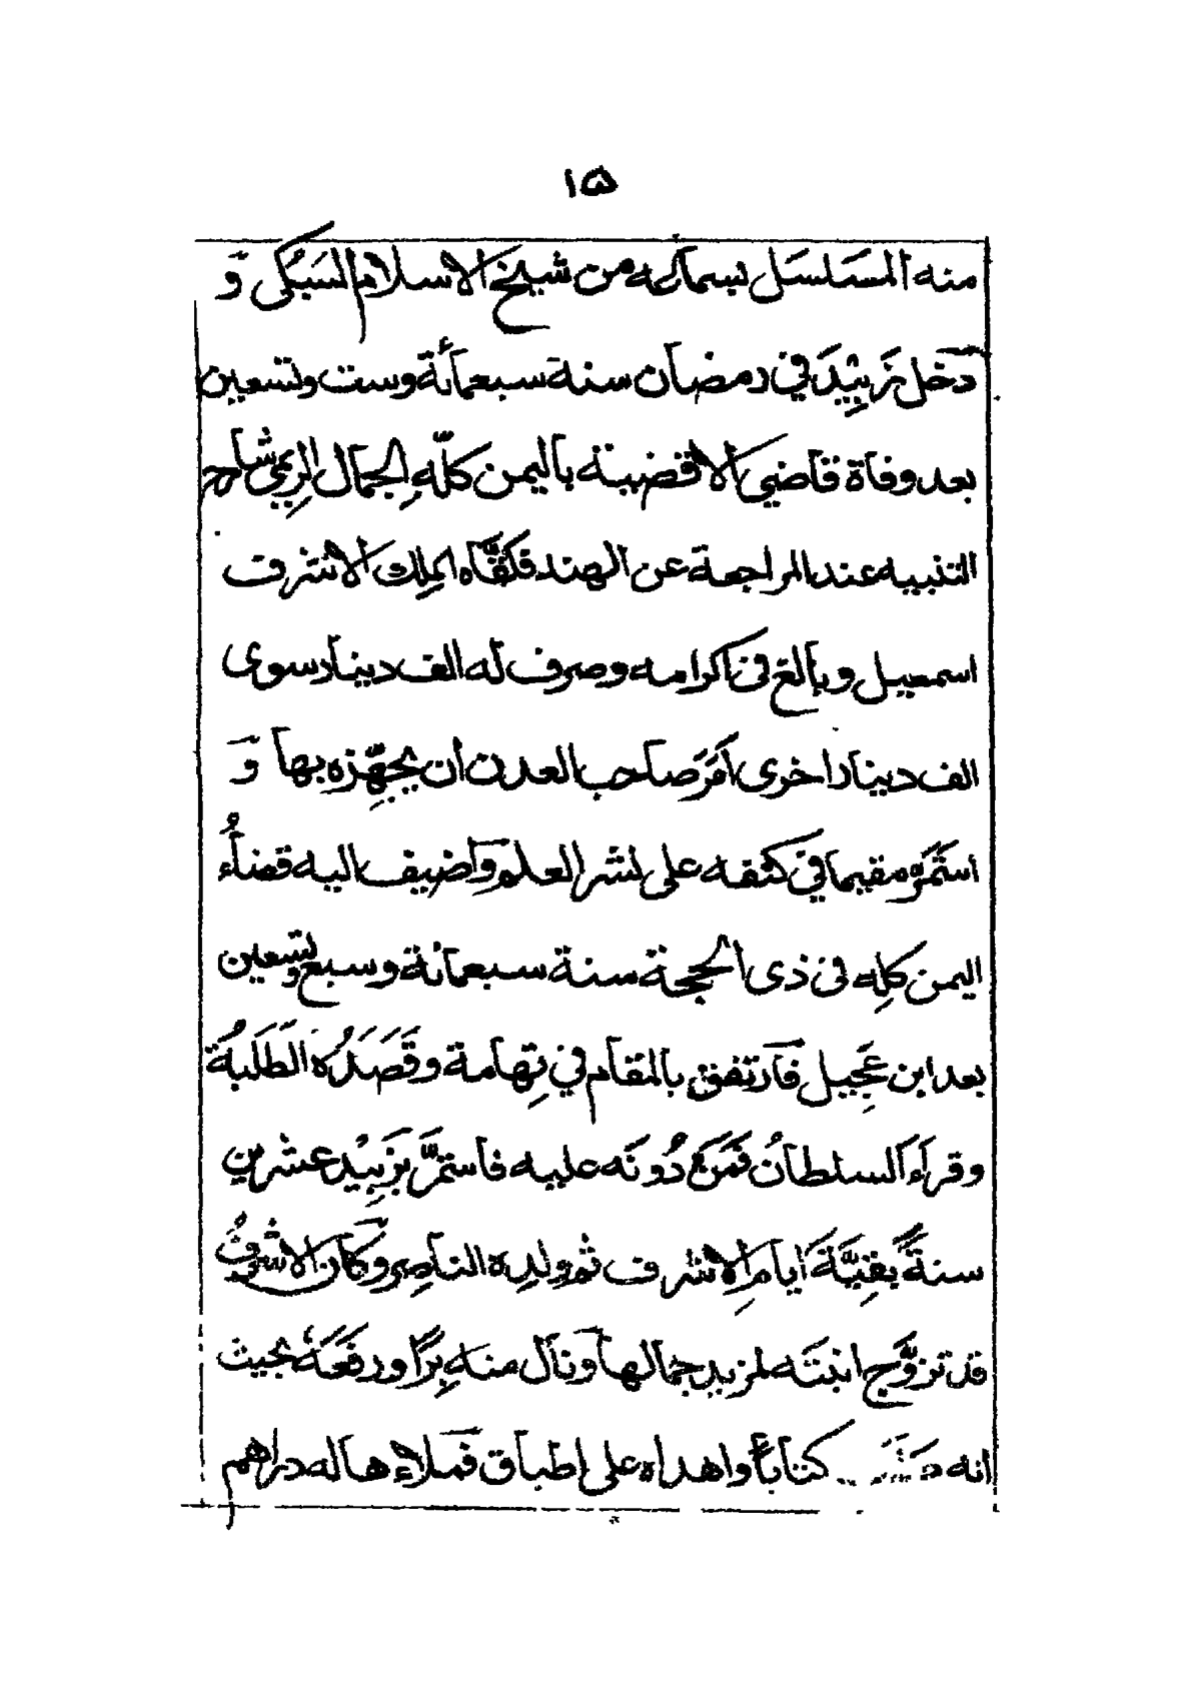 ١٥
منه المسلسل بسماعه من شيخ الاسلام السَبُكي وَ
دَخل زَبِيْدَ في رمضان سنة سبعمأئة وست وتسعين
بعد وفاة قاضي الاقضية باليمن كلّهِ الجمال الرِيمي شارح
التنبيه عند المراجعة عن الهند فتلقّاه الملِك الاشرف
اسمعيل وبالغ في اكرامه وصرف له الف دينار سوى
الف دينار اخرى اَمَرَ صاحب العدن أن يجهِّزه بها وَ
استَمَرّ مقيما في كنفه على نشر العلم واضيف اليه قضاُء
اليمن كلِه في ذى الحجة سنة سبعمائة وسبع وتسعين
بعد ابن عَجِيل فارتفق بالمُقام في تِهامة وقَصَدَهُ الطَلَبَةُ
وقراَء السلطانُ فمَن دُونَه عليه فاستمرَّ بزَبِيْد عشرين
سنةً بَقِيَّةَ ايامِ الاشرف ثم ولدِه الناصر وكان الاشرفُ
قد تزوَّج ابنتَه لمزيد جمالها ونال منه بِرًا ورفعَةً بحيث
انه صَنَّفَ كتاباً واهداه على اطباق فملاءها له دراهم